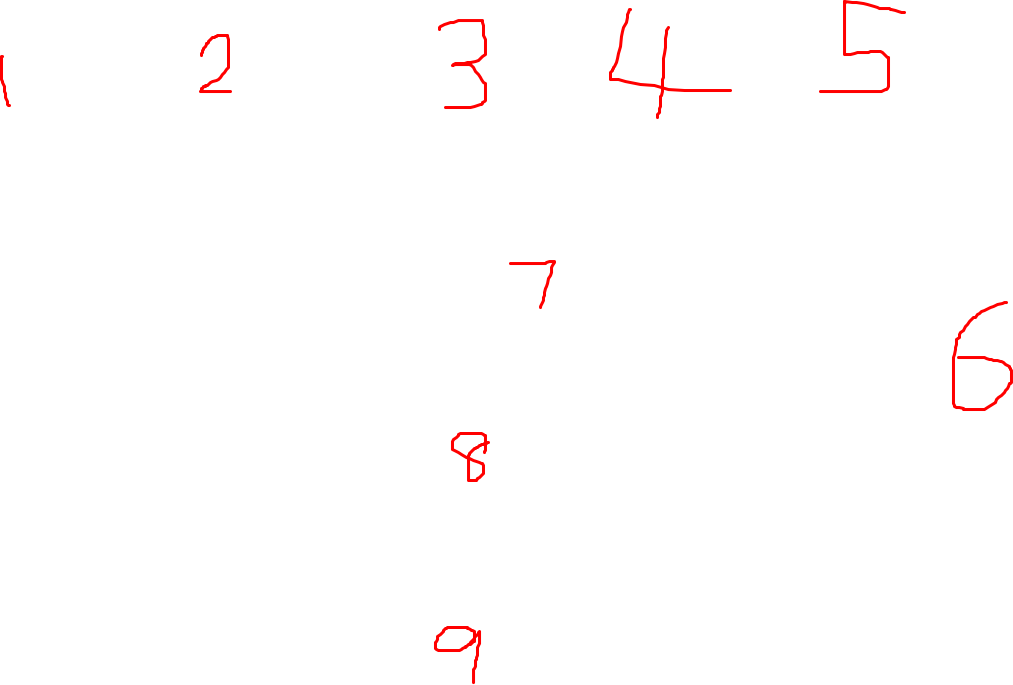 1 2 3 4 5
7
6
8
9